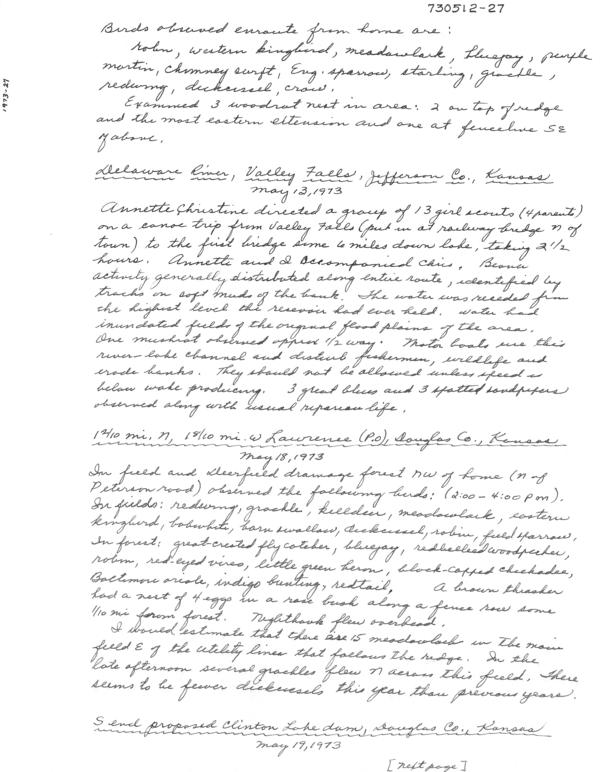 730512-27
1973-27
Birds observed enroute from home are:
robin, western kingbird, meadowlark, bluejay, purple
martin, chimney swift, Eng. sparrow, starling, grackle,
redwing, dickcissel, crow.
Examined 3 woodrat nest in area: 2 on top of ridge
and the most eastern extension and one at fenceline SE
of above.
Delaware River, Valley Falls, Jefferson Co., Kansas
May 13, 1973
Annette Christine directed a group of 13 girl scouts (4 parents)
on a canoe trip from Valley Falls (put in at railway bridge N of
town) to the first bridge some 6 miles down lake, taking 2 1/2
hours. Annette and I accompanied Chris. Beaver
activity generally distributed along entire route, identified by
tracks on soft muds of the bank. The water was receded from
the highest level the resevoir had ever held. Water had
inundated fields of the original flood plains of the area.
One muskrat observed approx 1/2 way. Motor boats use this
river-lake channel and disturb fishermen, wildlife and
erode banks. They should not be allowed unless speed is
below wake producing. 3 great blues and 3 spotted sandpipers
observed along with usual riparian life.
1 2/10 mi. N, 1 8/10 mi. W Lawrence (P.O), Douglas Co., Kansas
May 18, 1973
In field and Deerfield drainage forest NW of home (N of
Peterson road) observed the following birds: (2:00 - 4:00 pm).
In fields: redwing, grackle, killdeer, meadowlark, eastern
kingbird, bobwhite, barn swallow, dickcissel, robin, field sparrow.
In forest: great-crested flycatcher, bluejay, redbellied woodpecker,
robin, red-eyed vireo, little green heron, black-capped chickadee,
Baltimore oriole, indigo bunting, redtail. A brown thrasher
had a nest of 4 eggs in a rose bush along a fence row some
1/10 mi from forest. Nighthawk flew overhead.
I would estimate that there are 15 meadowlark in the main
field E of the utility lines that follows the ridge. In the
late afternoon several grackles flew N across this field. There
seems to be fewer dickcissels this year than previous years.
S end proposed Clinton Lake dam, Douglas Co., Kansas
May 19, 1973
[next page]